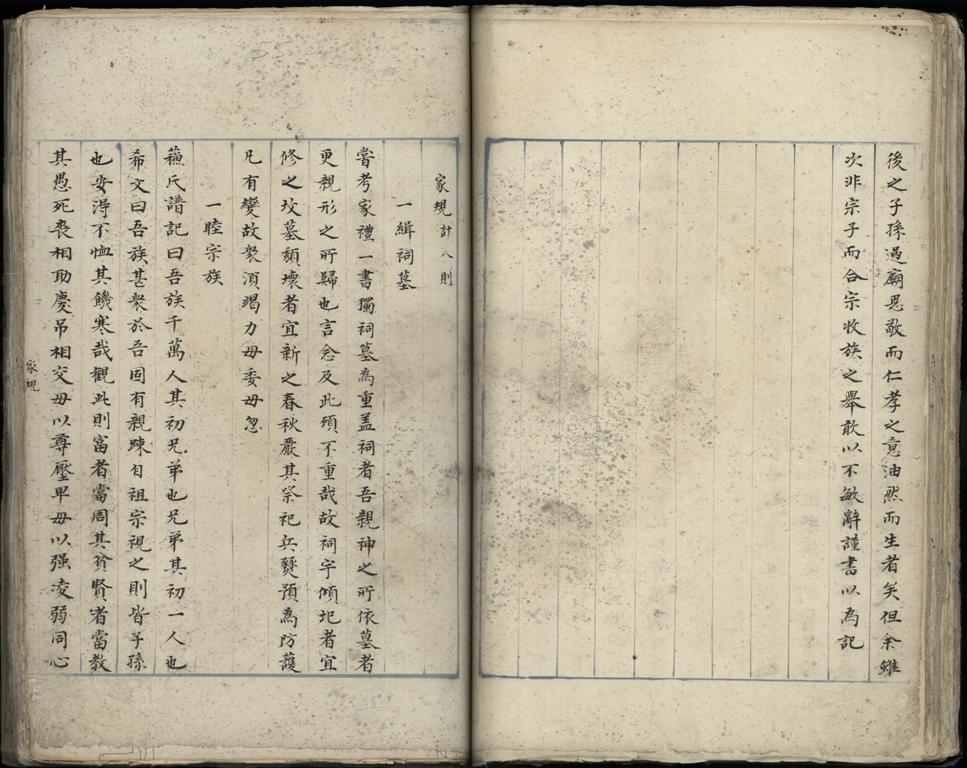 後之子孫過廟思敬而仁孝之意油然而生者矣但余雖
次非宗子而合宗收族之舉敢以不敏辭謹書以為記
家規計八則
一緝祠墓
嘗考家禮一書獨祠墓為重盖祠者吾親神之所依墓者
更親形之所歸也言念及此湏不重哉故祠宇傾圯者宜
修之坟墓頽壞者宜新之春秋嚴其祭祀兵燹預為防護
凡有變故衆湏竭力毋委毋忽
一睦宗族
蘓氏譜記曰吾族千萬人其初兄弟也兄弟其初一人也
希文曰吾族甚衆於吾固有親踈自祖宗視之則皆子孫
也安淂不恤其饑寒哉觀此則富者當周其貧賢者當教
其愚死喪相助慶吊相交毋以尊壓卑毋以强凌弱同心
家規